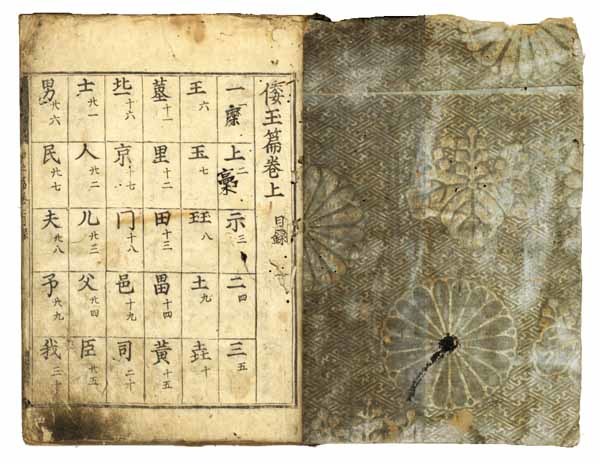 倭玉篇卷上 目録
一 上二 示三 二四 三五
王六 玉七 玨八 土九 垚十
堇十一 里十二 田十三 畕十四 黃十五
丠十六 京十七 冂十八 邑十九 司二十
士廿一 人廿二 儿廿三 父廿四 臣廿五
男廿六 民廿七 夫廿八 予廿九 我三十